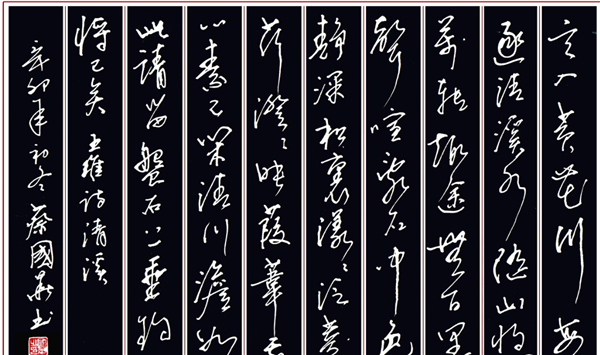 言入黃花川每
逐清溪水隨山將
萬轉趣途無百里
聲喧亂石中色
靜深松裏漾〻泛菱
荇澄〻映葭葦我
心素已閑清川澹如
此請留盤石上垂釣
將已矣 王維詩清溪
辛卯年初冬 蔡國書